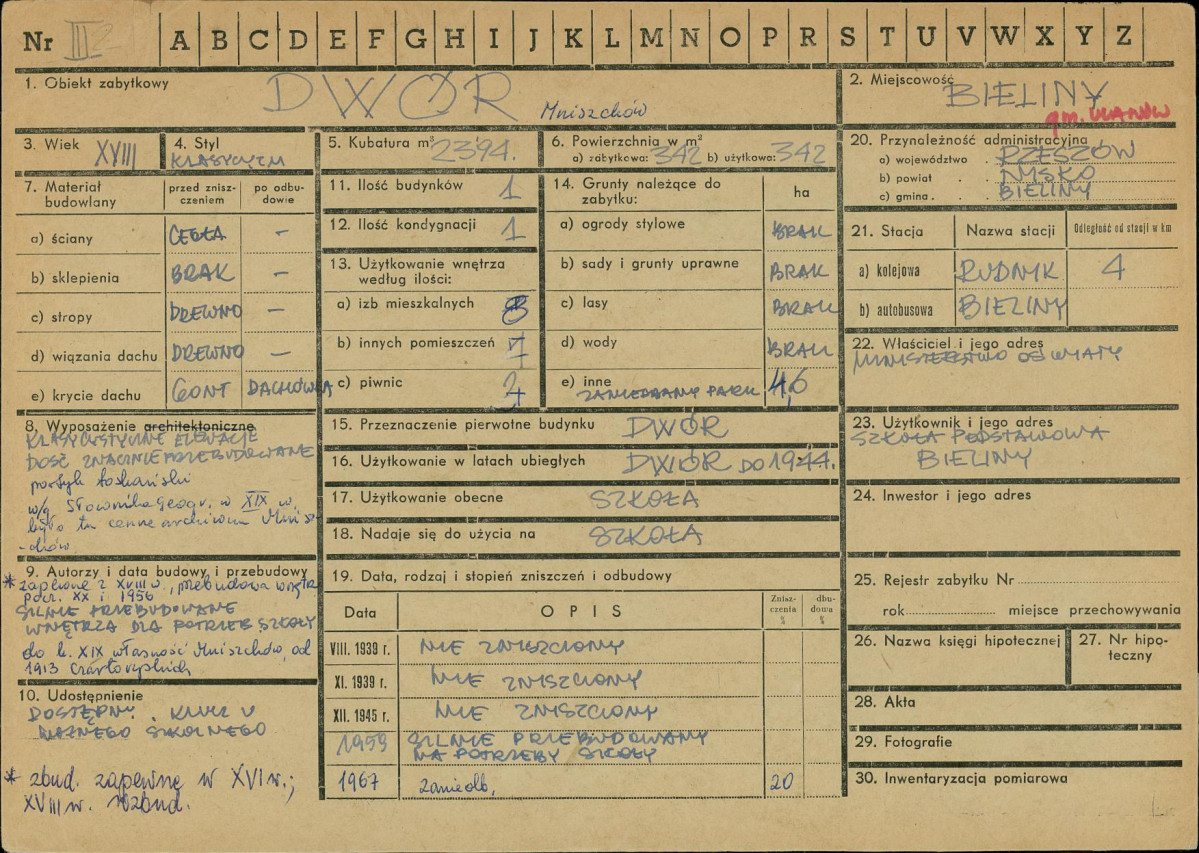 Nr III
A B C D E F G H I J K L M N O P R S T U V W X Y Z
1. Obiekt zabytkowy DWÓR Mniszchów
2. Miejscowość BIELINY
gm. ULANÓW
3. Wiek XVIII
4. Styl KLASYCYZM
5. Kubatura m³ 2394.
6. Powierzchnia w m²
a) zabytkowa: 342 b) użytkowa: 342
7. Materiał budowlany
przed zniszczeniem
po odbudowie
a) ściany CEGŁA –
b) sklepienia BRAK –
c) stropy DREWNO –
d) wiązania dachu DREWNO –
e) krycie dachu GONT DACHÓWKA
8. Wyposażenie architektoniczne
KLASYCYSTYCZNE ELEWACJE
DOŚĆ ZNACZNIE PRZEBUDOWANE
portyk toskański
w/g Słownika Geogr. w XIX w.
było tu cenne archiwum Mnisz-
-chów
9. Autorzy i data budowy i przebudowy
* zapewne z XVIII w., przebudowa wnętrz
pocz. XX i 1956
SILNIE PRZEBUDOWANE
WNĘTRZA DLA POTRZEB SZKOŁY
do k. XIX własność Mniszchów, od
1913 Czartoryskich
10. Udostępnienie
DOSTĘPNY. KLUCZ U
WOŹNEGO SZKOLNEGO
* zbud. zapewne w XVI w.;
XVIII w. rozbud.
11. Ilość budynków 1
12. Ilość kondygnacji 1
13. Użytkowanie wnętrza
według ilości:
a) izb mieszkalnych 8
b) innych pomieszczeń
c) piwnic
14. Grunty należące do
zabytku:
ha
a) ogrody stylowe BRAK
b) sady i grunty uprawne BRAK
c) lasy BRAK
d) wody BRAK
e) inne
ZANIEDBANY PARK 4,6
15. Przeznaczenie pierwotne budynku DWÓR
16. Użytkowanie w latach ubiegłych DWÓR DO 1944.
17. Użytkowanie obecne SZKOŁA
18. Nadaje się do użycia na SZKOŁA
19. Data, rodzaj i stopień zniszczeń i odbudowy
Data OPIS Zniszczenia % dbudowa %
VIII. 1939 r. NIE ZNISZCZONY
XI. 1939 r. NIE ZNISZCZONY
XII. 1945 r. NIE ZNISZCZONY
1959 SILNIE PRZEBUDOWANY
NA POTRZEBY SZKOŁY
1967 zaniedb. 20
20. Przynależność administracyjna
a) województwo . RZESZÓW
b) powiat . . NISKO
c) gmina . . BIELINY
21. Stacja Nazwa stacji Odległość od stacji w km
a) kolejowa RUDNIK 4
b) autobusowa BIELINY
22. Właściciel i jego adres
MINISTERSTWO OŚWIATY
23. Użytkownik i jego adres
SZKOŁA PODSTAWOWA
BIELINY
24. Inwestor i jego adres
25. Rejestr zabytku Nr
rok miejsce przechowywania
26. Nazwa księgi hipotecznej
27. Nr hipoteczny
28. Akta
29. Fotografie
30. Inwentaryzacja pomiarowa